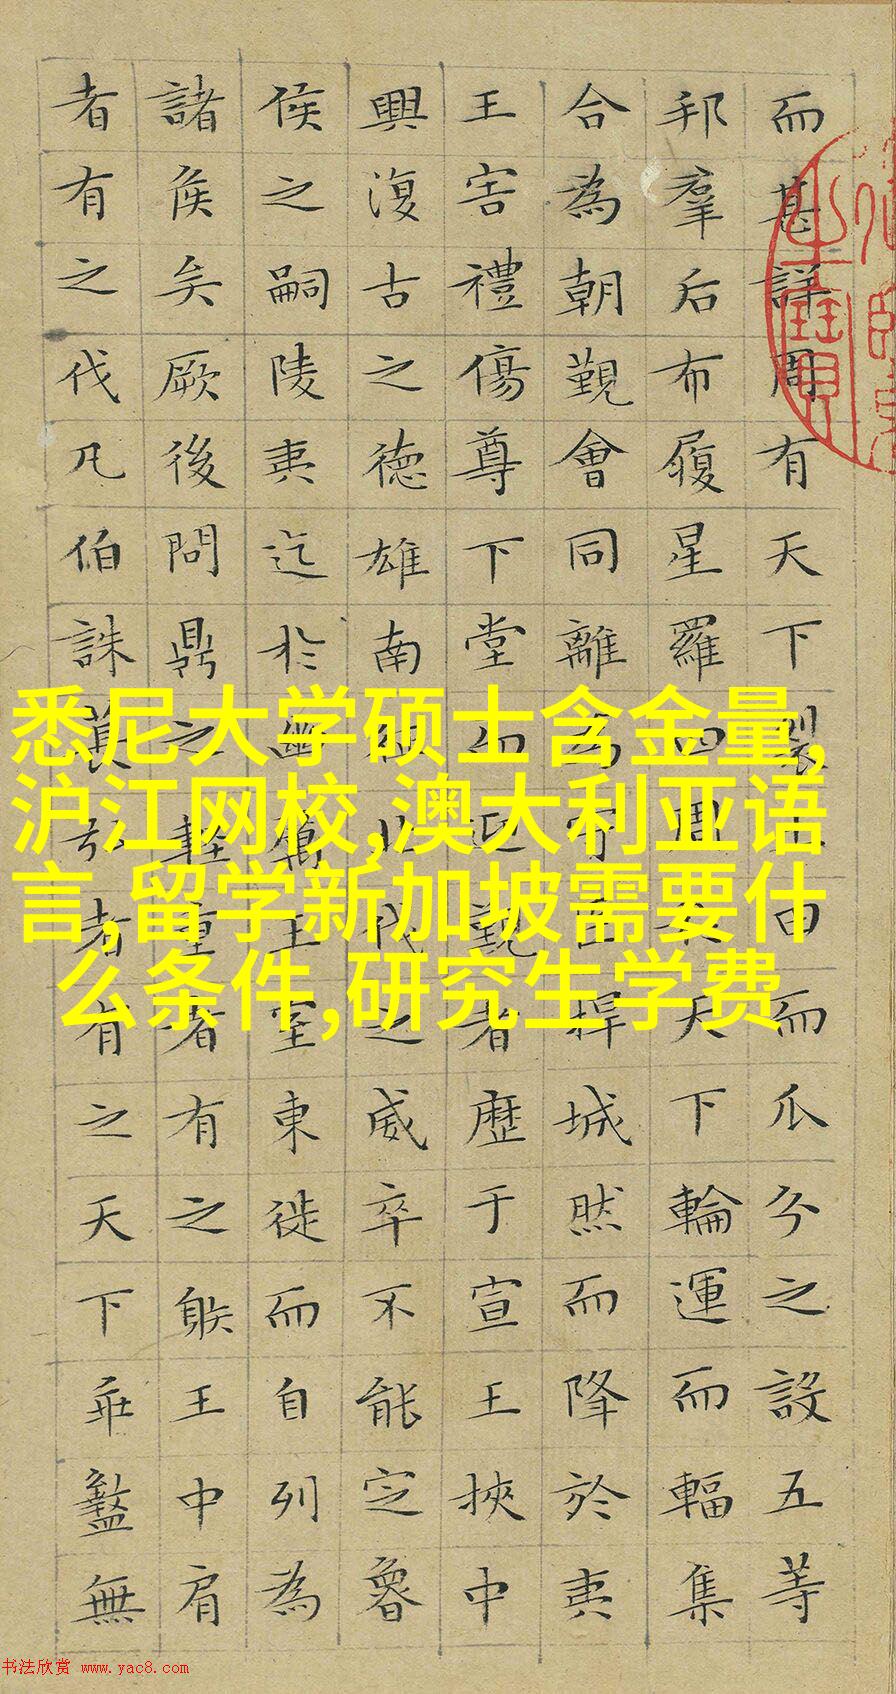 悉尼大学硕士含金量,
沪江网校,澳大利亚语
言,留学新加坡需要什
么条件,研究生学费
而甚詳周有天下裂田而瓜分之設五等
邦羣后布履星羅四周天下輪運而輻集
合為朝覲會同離為守臣捍城然而降於夷
王害禮傷尊下堂而迎覲者歷于宣王挾中
興復古之德雄南征北伐之威卒不能定魯
侯之嗣陵夷迄於幽厲王室東徙而自列為
諸侯矣厥後問鼎之輕重者有之躲王中肩
者有之伐凡伯誅萇弘者有之天下乖盭無
书法欣赏 www.yac8.com